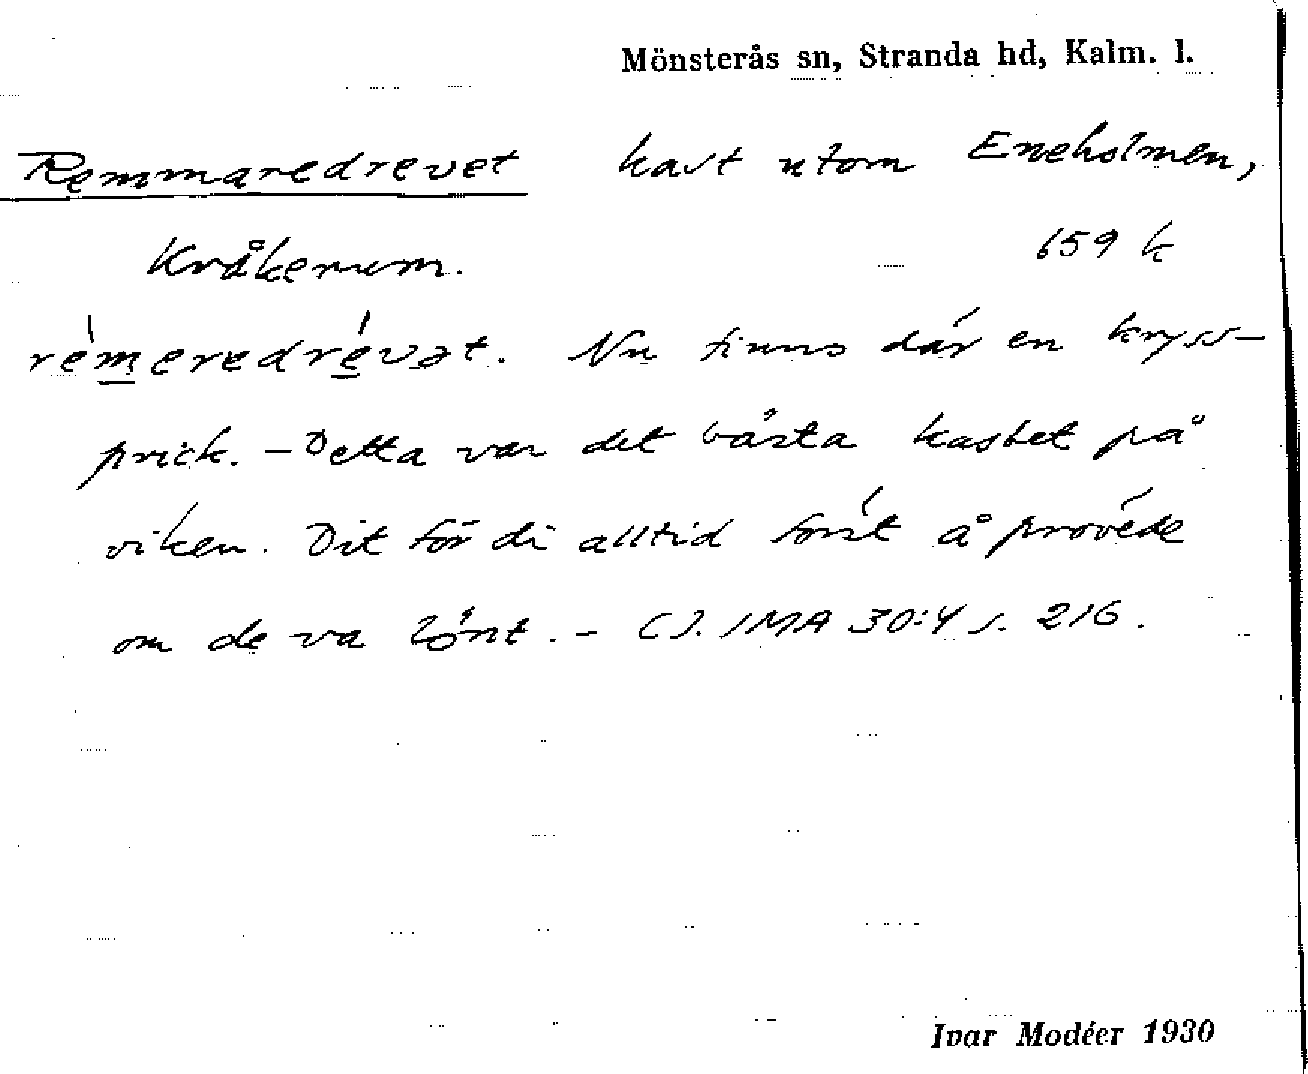 Mönsterås sn, Stranda hd, Kalm. l.
Remmaredrevet kast utom Eneholmen,
Kråkerum. 659 k
rémeredrévət. Nu finns där en kryss-
prick. - Detta var det bästa kastet på
viken. Dit for di alltid först å prövede
om de va lönt. - CJ. IMA 30:4 s. 216.
Ivar Modéer 1930